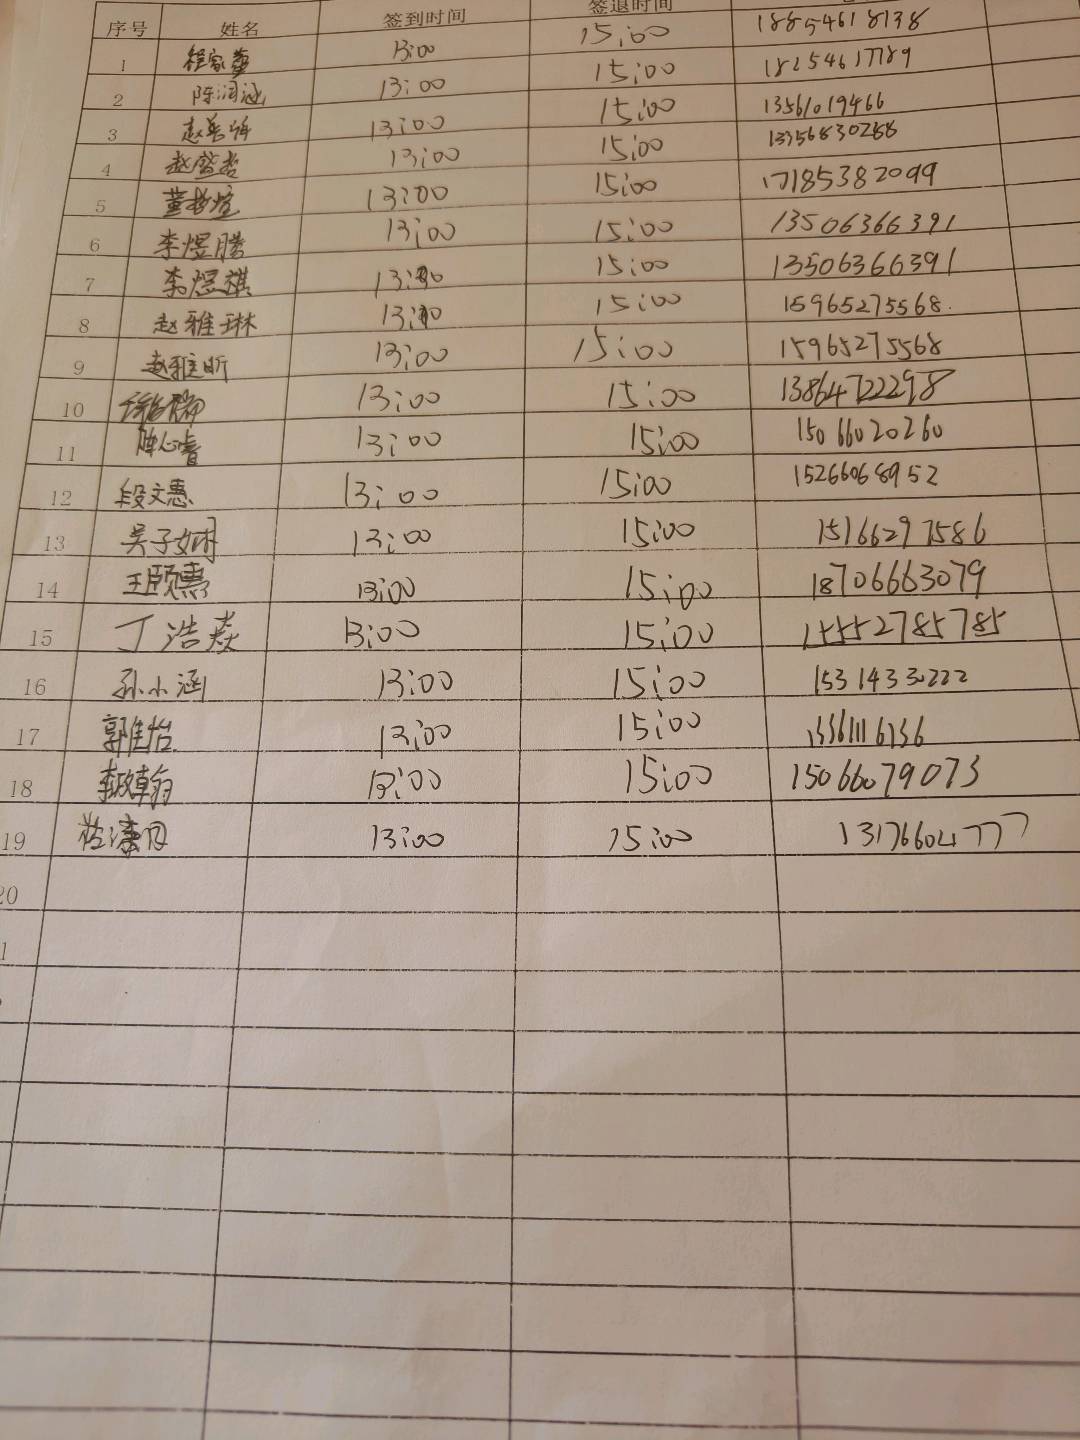 序号 姓名 签到时间 签退时间
1 程家 13:00 15:00 18854618138
2 陈润涵 13:00 15:00 18254617789
3 赵 13:00 15:00 13561019466
4 赵 13:00 15:00 13356830288
5 董 13:00 15:00 17185382099
6 李煜腾 13:00 15:00 13506366391
7 李煜祺 13:00 15:00 13506366391
8 赵雅琳 13:00 15:00 15965275568.
9 赵雅昕 13:00 15:00 15965275568
10 13:00 15:00 13864722298
11 陈心睿 13:00 15:00 15066020260
12 段文惠 13:00 15:00 15266068952
13 吴子娴 13:00 15:00 15166297586
14 王颐惠 13:00 15:00 18706663079
15 丁浩焱 13:00 15:00 15552785785
16 孙小涵 13:00 15:00 15314330222
17 郭佳怡 13:00 15:00 13361116136
18 李 翰 13:00 15:00 15066079073
19 13:00 15:00 13176604777
20